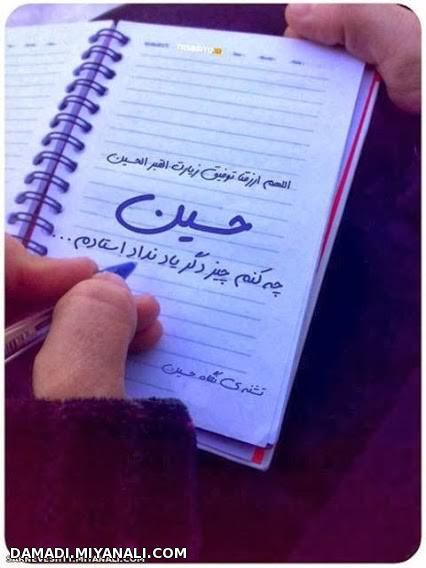 اللهم ارزقنا توفیق زیارت قبر الحسین
حسین
چه کنم چیز دگر یاد نداد استادم ...
تشنه ی نگاه حسین
DAMADI.MIYANALI.COM